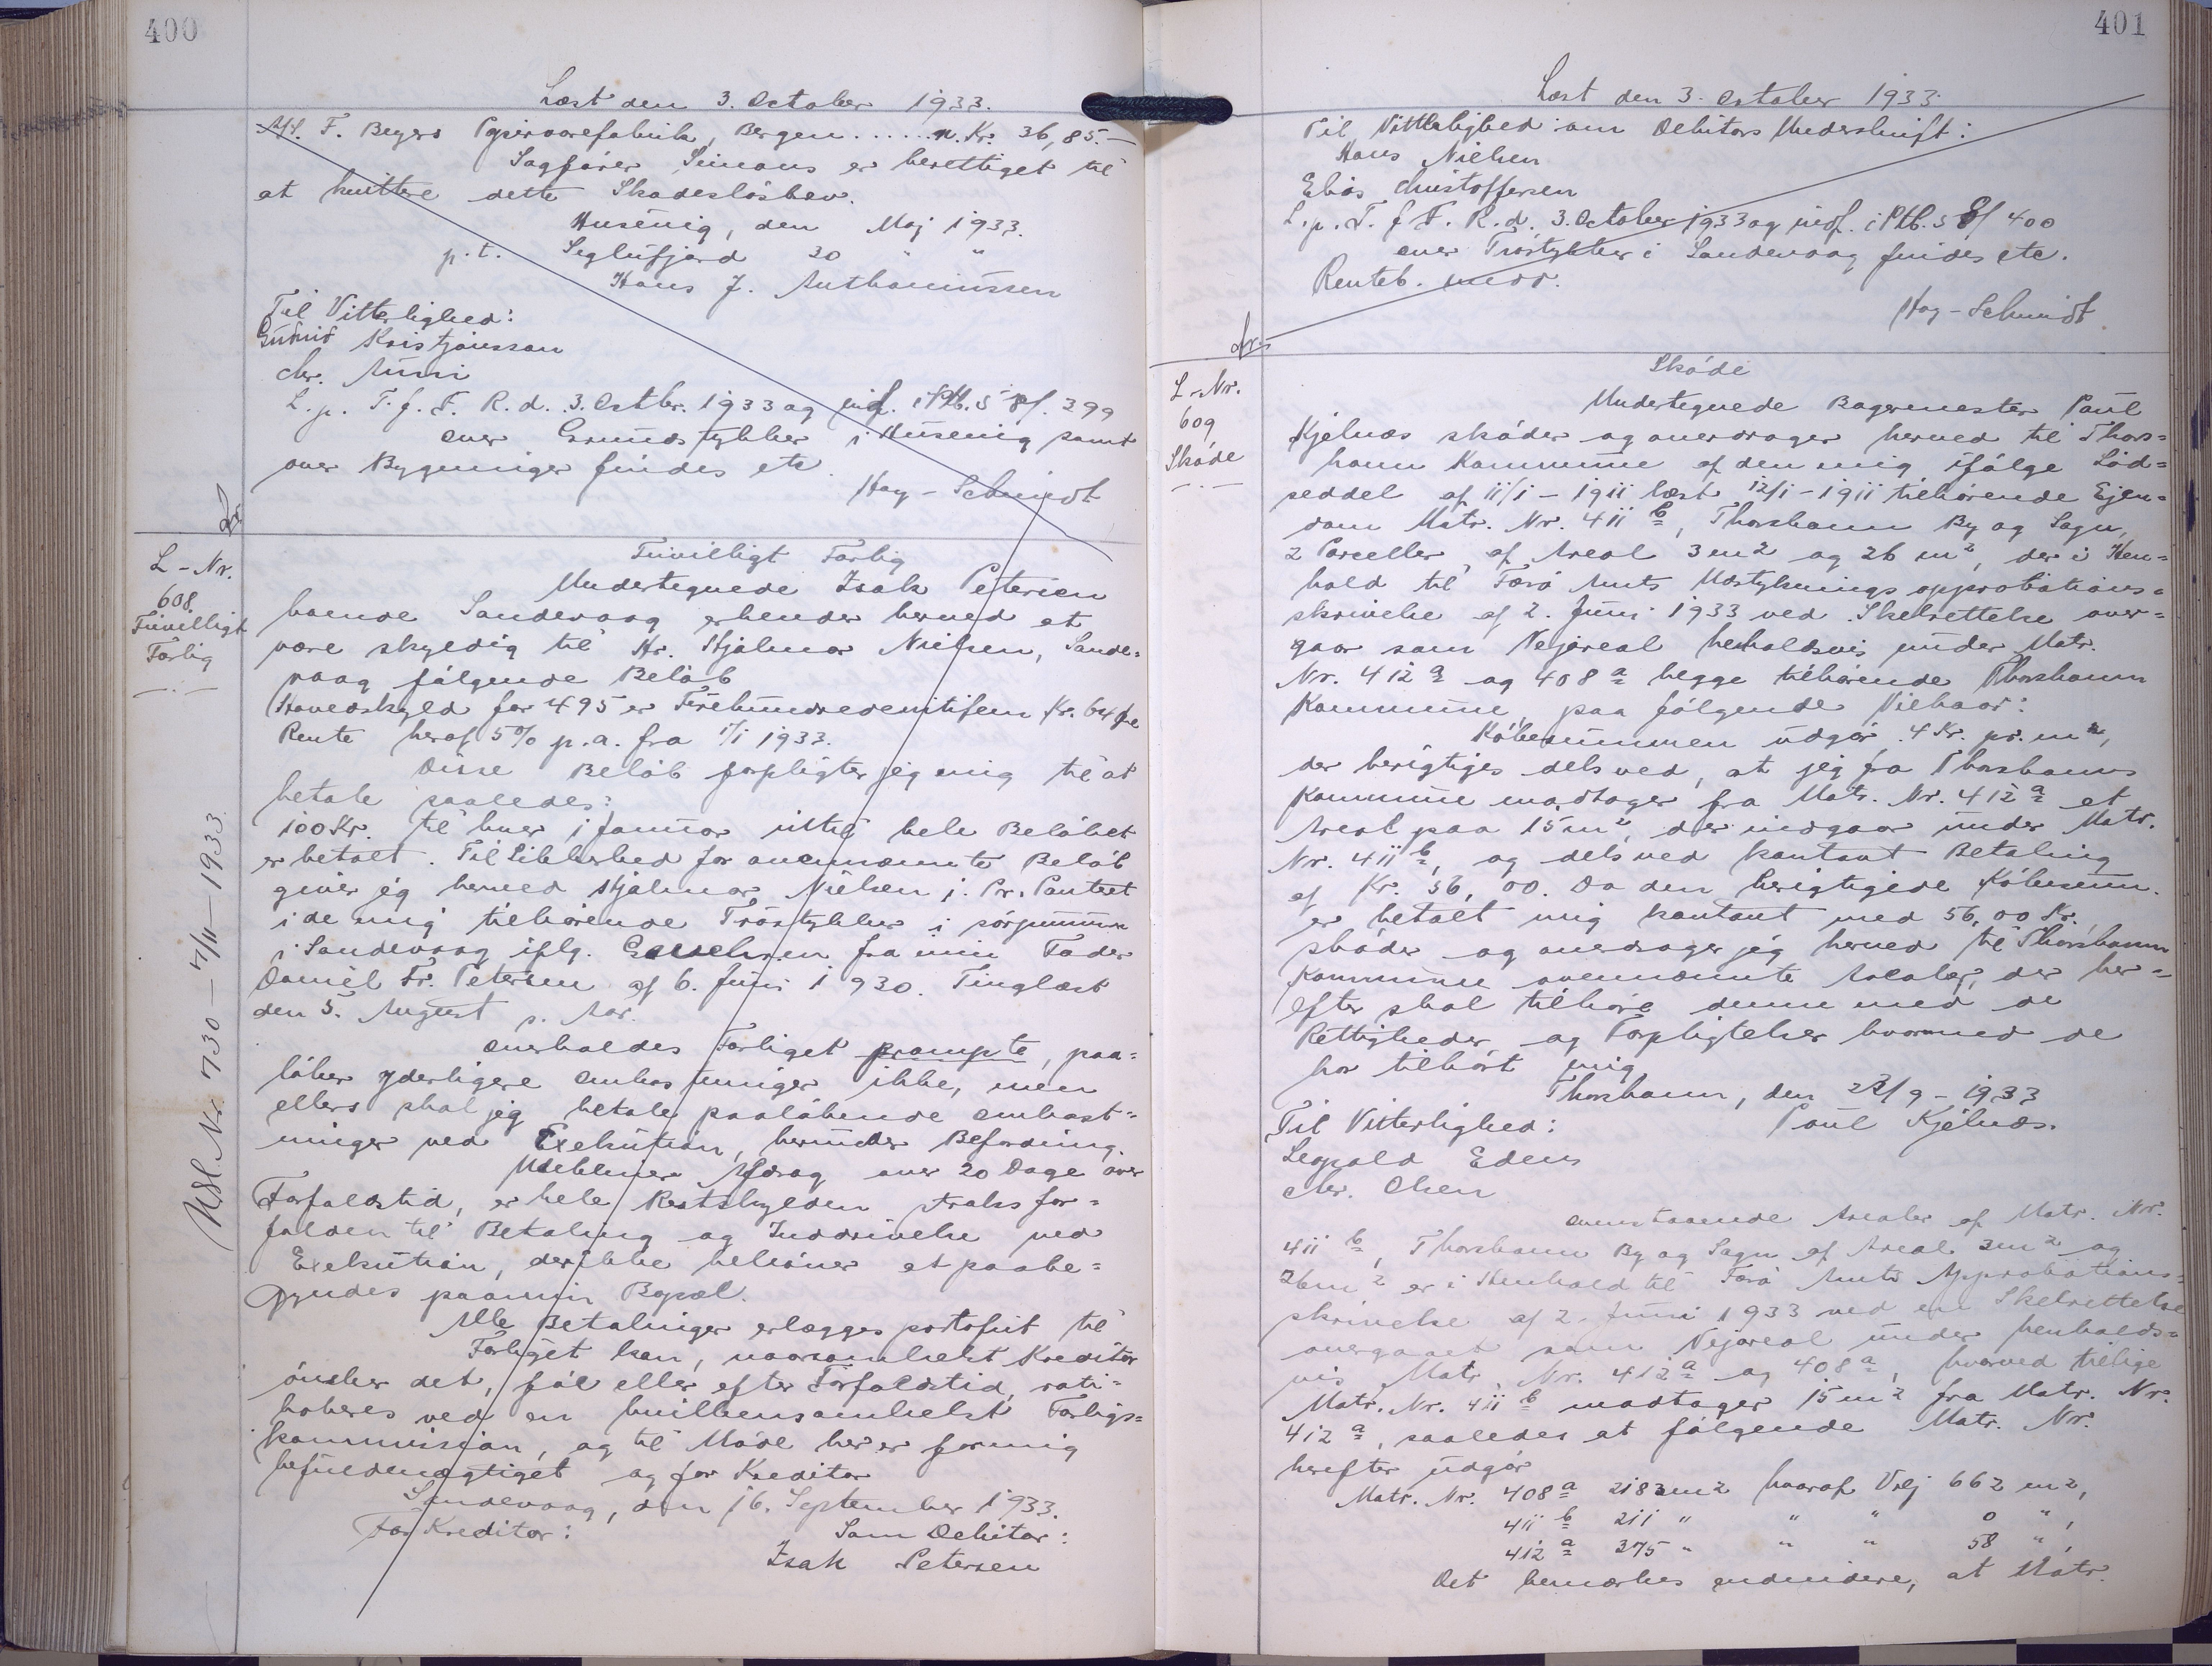 400
Læst den 3. October 1933.
A/S. F. Beyers Papirvarefabrik, Bergen ..... n. Kr. 36,85.-
Sagfører Simons er berettiget til
at kvittere dette Skadesløsbrev.
Husevig, den Maj 1933.
p.t. Siglufjørd 20 " "
Hans J. Anthoniussen
Til Vitterlighed:
Gudnid Kristjansson
Chr. Auni
L.p. T. f. F. R. d. 3. Octbr. 1933 og indf. i Ptb. S 8 f. 399
over Grundstykker i Husevig samt
over Bygninger findes etc.
Høy-Schmidt
L-Nr.
608.
Frivilligt
Forlig
Frivilligt Forlig
Undertegnede Isak Petersen
boende Sandevaag erkender herved at
være skyldig til Hr. Hjalmar Nielsen, Sande=
vaag følgende Beløb
Hovedskyld for 495 er Firehundredenitifem Kr. 64 Øre
Rente heraf 5% p.a. fra 1/1 1933.
Disse Beløb forpligter jeg mig til at
betale saaledes:
100 Kr. til hver 1 Januar indtil hele Beløbet
er betalt. Til Sikkerhed for ovennævnte Beløb
giver jeg herved Hjalmar Nielsen 1. Pr. Panteret
i de mig tilhørende Trøstykker i
i Sandevaag iflg. fra min Fader
Daniel Fr. Petersen af 6. Juni 1930. Tinglæst
den 5. August s. Aar.
Overholdes Forliget prompte, paa=
løber yderligere Omkostninger ikke, men
ellers skal jeg betale paaløbende Omkost=
ninger ved Exekution, herunder Befordring.
Udebliver Afdrag over 20 Dage over
Forfaldstid, er hele Restskylden straks for=
falden til Betaling og Inddrivelse ved
Exekution, der ikke behøver at paabe=
gyndes paa min Bopæl.
Alle Betalinger erlægges portofrit til
Forliget kan, naarsomhelst Kreditor
ønsker det, før eller efter Forfaldstid, rati=
haberes ved en hvilkensomhelst Forligs=
kommission, og til Møde her er for mig
befuldmægtiget og for Kreditor
Sandevaag, den 16. September 1933.
For Kreditor: Som Debitor:
Isak Petersen
Udsl. Nr. 730 - 7/11 - 1933.
401
Læst den 3. October 1933.
Til Vitterlighed om Debitors Underskrift:
Hans Nielsen
Elias Christoffersen
L.p. T. f. F. R. d. 3. October 1933 og indf. i Ptb. S 8 f 400
over Trøstykker i Sandevaag findes etc.
Renteb. medd.
Høy-Schmidt
L-Nr.
609
Skøde
Skøde
Undertegnede Bagermester Poul
Kjelnæs skøder og overdrager herved til Thors=
havn Kommune af den mig ifølge Lod=
seddel af 11/1 - 1911 læst 12/1 - 1911 tilhørende Ejen=
dom Matr. Nr. 411 b, Thorshavn By og Sogn,
2 Parceller, af Areal 3 m2 og 26 m2, der i Hen=
hold til Færø Amts Udstyknings approbations=
skrivelse af 2. Juni 1933 ved Skelrettelse over=
gaar som Vejareal henholdsvis under Matr.
Nr. 412 a og 408 a begge tilhørende Thorshavn
Kommune paa følgende Vilkaar:
Købesummen udgør 4 Kr. pr. m2,
der berigtiges dels ved, at jeg fra Thorshavns
Kommune modtager fra Matr. Nr. 412 a et
Areal paa 15 m2, der indgaar under Matr.
Nr. 411 b, og dels ved kontant Betaling
af Kr. 56,00. Da den berigtigede Købesum
er betalt mig kontant med 56,00 Kr.,
skøder og overdrager jeg herved til Thorshavn
Kommune ovennævnte Arealer, der her=
efter skal tilhøre denne med de
Rettigheder og Forpligtelser hvormed de
har tilhørt mig
Thorshavn, den 23/9 - 1933
Til Vitterlighed: Poul Kjelnæs.
Leopold Edens
Chr. Olsen
Ovenstaaende Arealer af Matr. Nr.
411 b, Thorshavn By og Sogn af Areal 3 m2 og
26 m2 er i Henhold til Færø Amts Approbations=
skrivelse af 2. Juni 1933 ved en Skelrettelse
overgaaet som Vejareal under henholds=
vis Matr. Nr. 412 a og 408 a, hvorved tillige
Matr. Nr. 411 b modtager 15 m2 fra Matr. Nr.
412 a, saaledes at følgende Matr. Nr.
herefter udgør
Matr. Nr. 408 a 2183 m2 hvoraf Vej 662 m2,
411 b 211 " " " 0 ",
412 a 375 " " " 58 ",
Det bemærkes endvidere, at Matr.